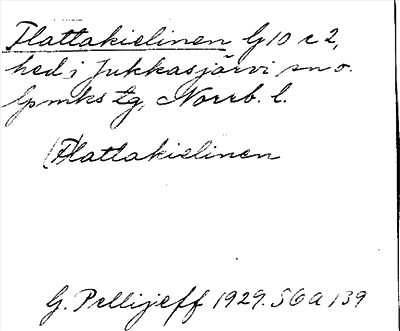 Flattakielinen G 10 c 2,
hed i Jukkasjärvi sn o.
Gpmks tg, Norrb. l.
(F)lattakielinen
G. Pellijeff 1929. S6a 139